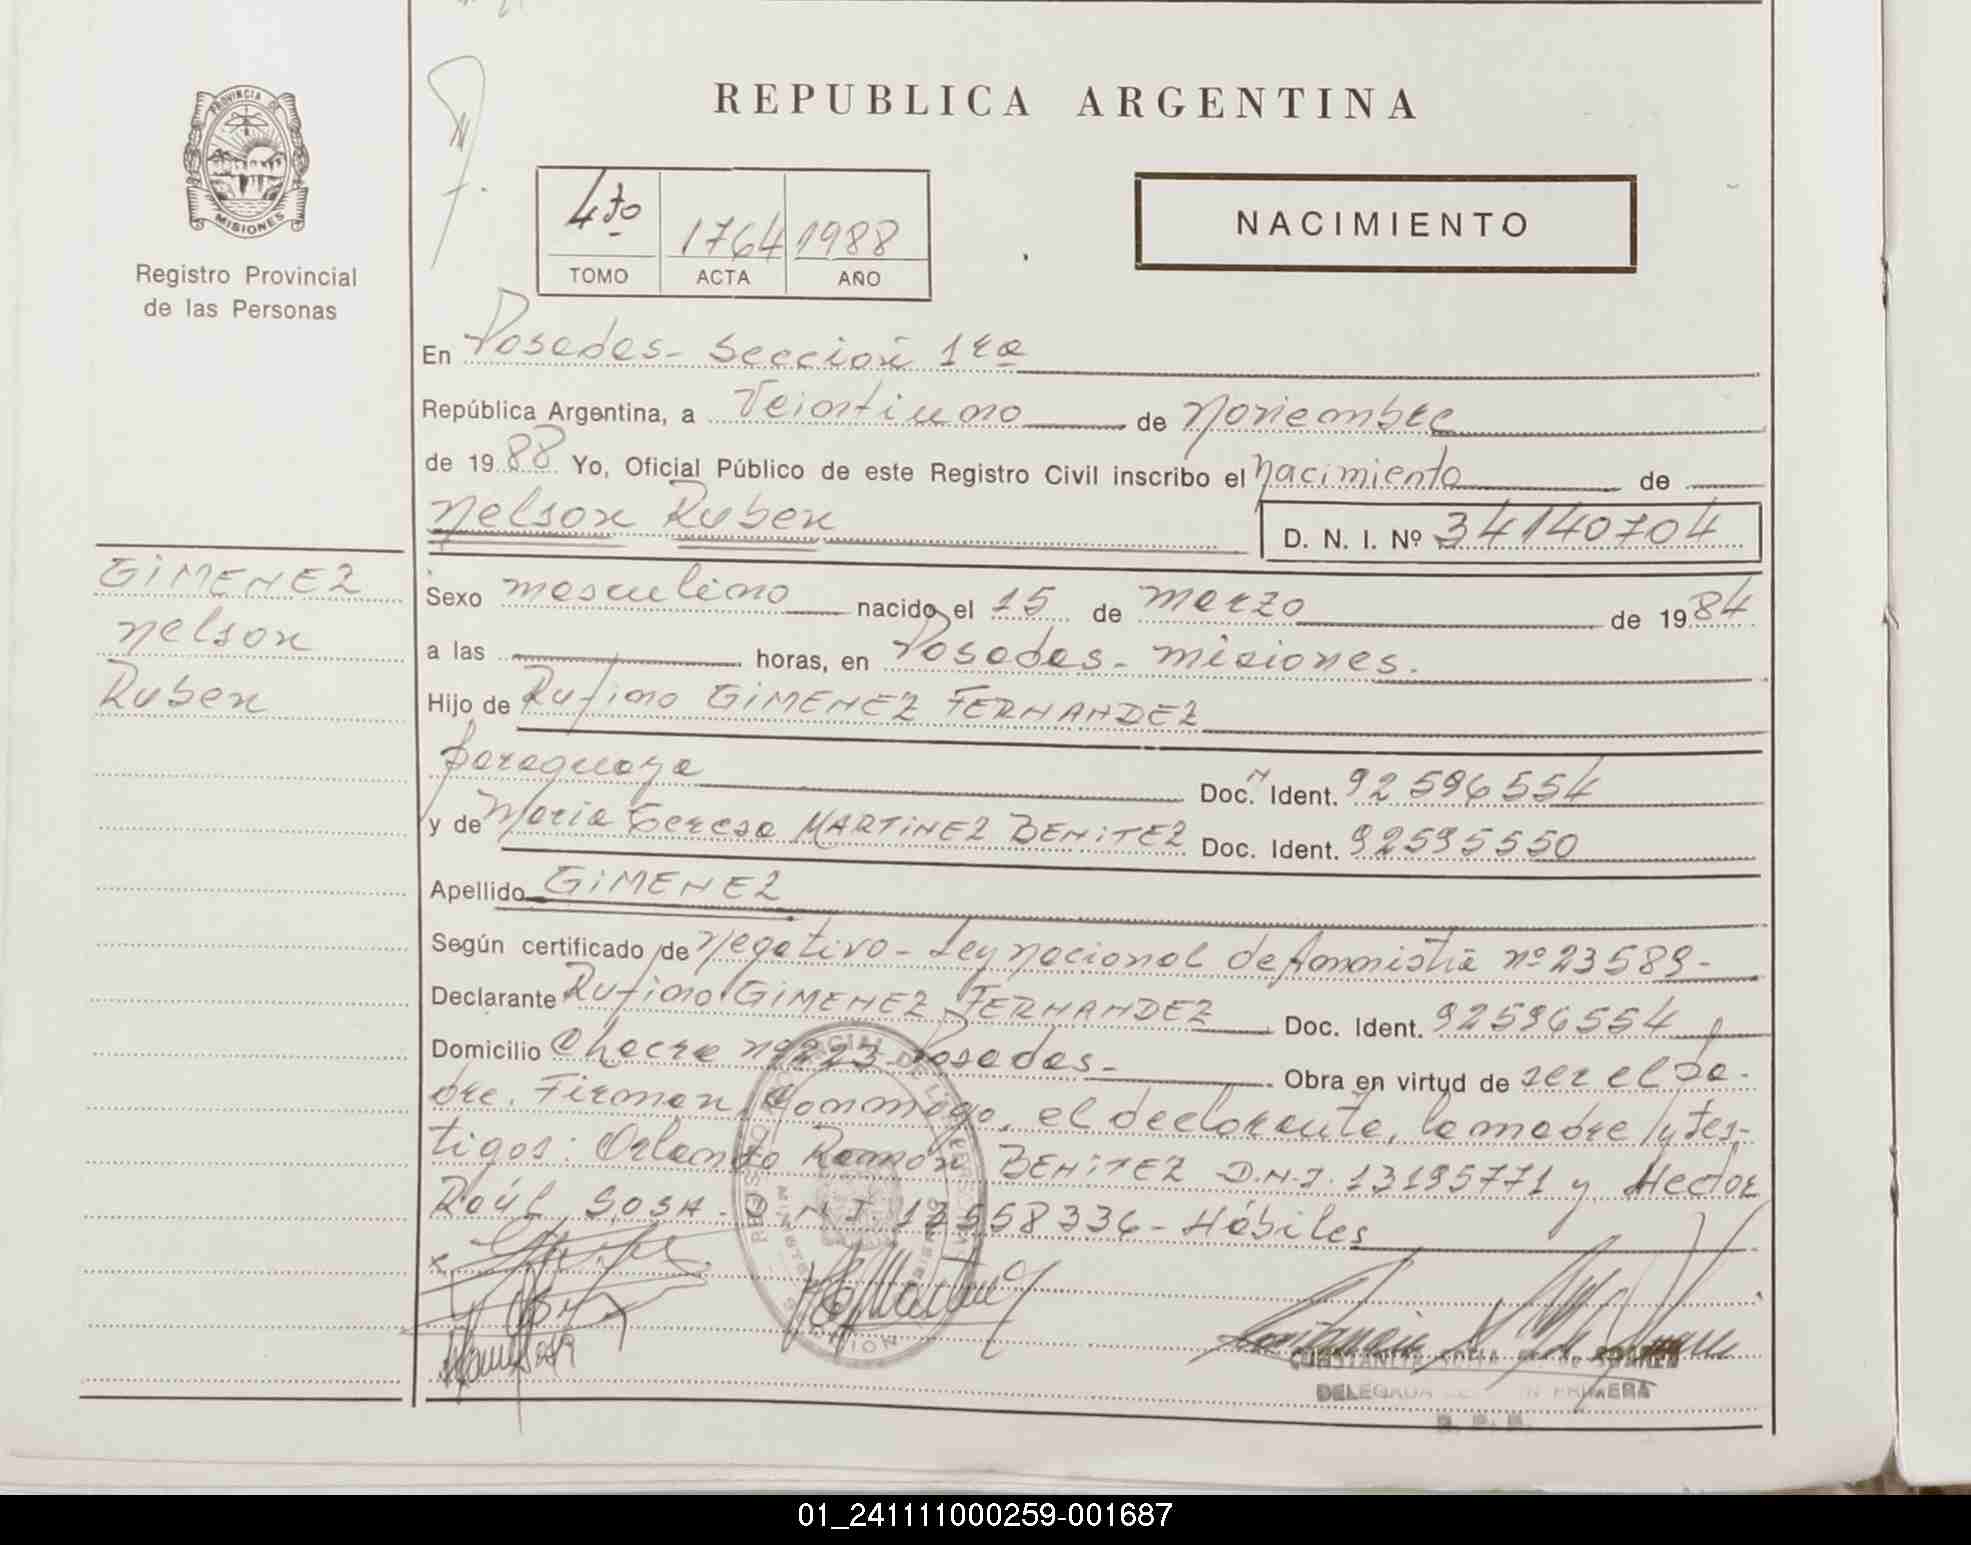 REPUBLICA ARGENTINA
PROVINCIA DE
MISIONES
Registro Provincial
de las Personas
4to 1764 1988
TOMO ACTA AÑO
NACIMIENTO
En Posadas - Sección 1ra
República Argentina, a Veintiuno de Noviembre
de 1988 Yo, Oficial Público de este Registro Civil inscribo el Nacimiento de
Nelson Ruben D. N. I. Nº 34140704
GIMENEZ
Nelson
Ruben
Sexo masculino nacido el 15 de Marzo de 1984
a las horas, en Posadas - Misiones.
Hijo de Rufino GIMENEZ FERNANDEZ
paraguaya Doc. Ident. 92596554
y de Maria Teresa MARTINEZ BENITEZ Doc. Ident. 92595550
Apellido GIMENEZ
Según certificado de Negativo - Ley Nacional de Amnistía nº 23589 -
Declarante Rufino GIMENEZ FERNANDEZ Doc. Ident. 92596554
Domicilio Chacra nº 223 - Posadas - Obra en virtud de ser el pa-
dre. Firman conmigo, el declarante, la madre y tes-
tigos: Orlando Ramón BENITEZ D.N.I. 13195771 y Hector
Raúl SOSA - D.N.I. 12558336 - Hábiles
DELEGADA PRIMERA
01_241111000259-001687